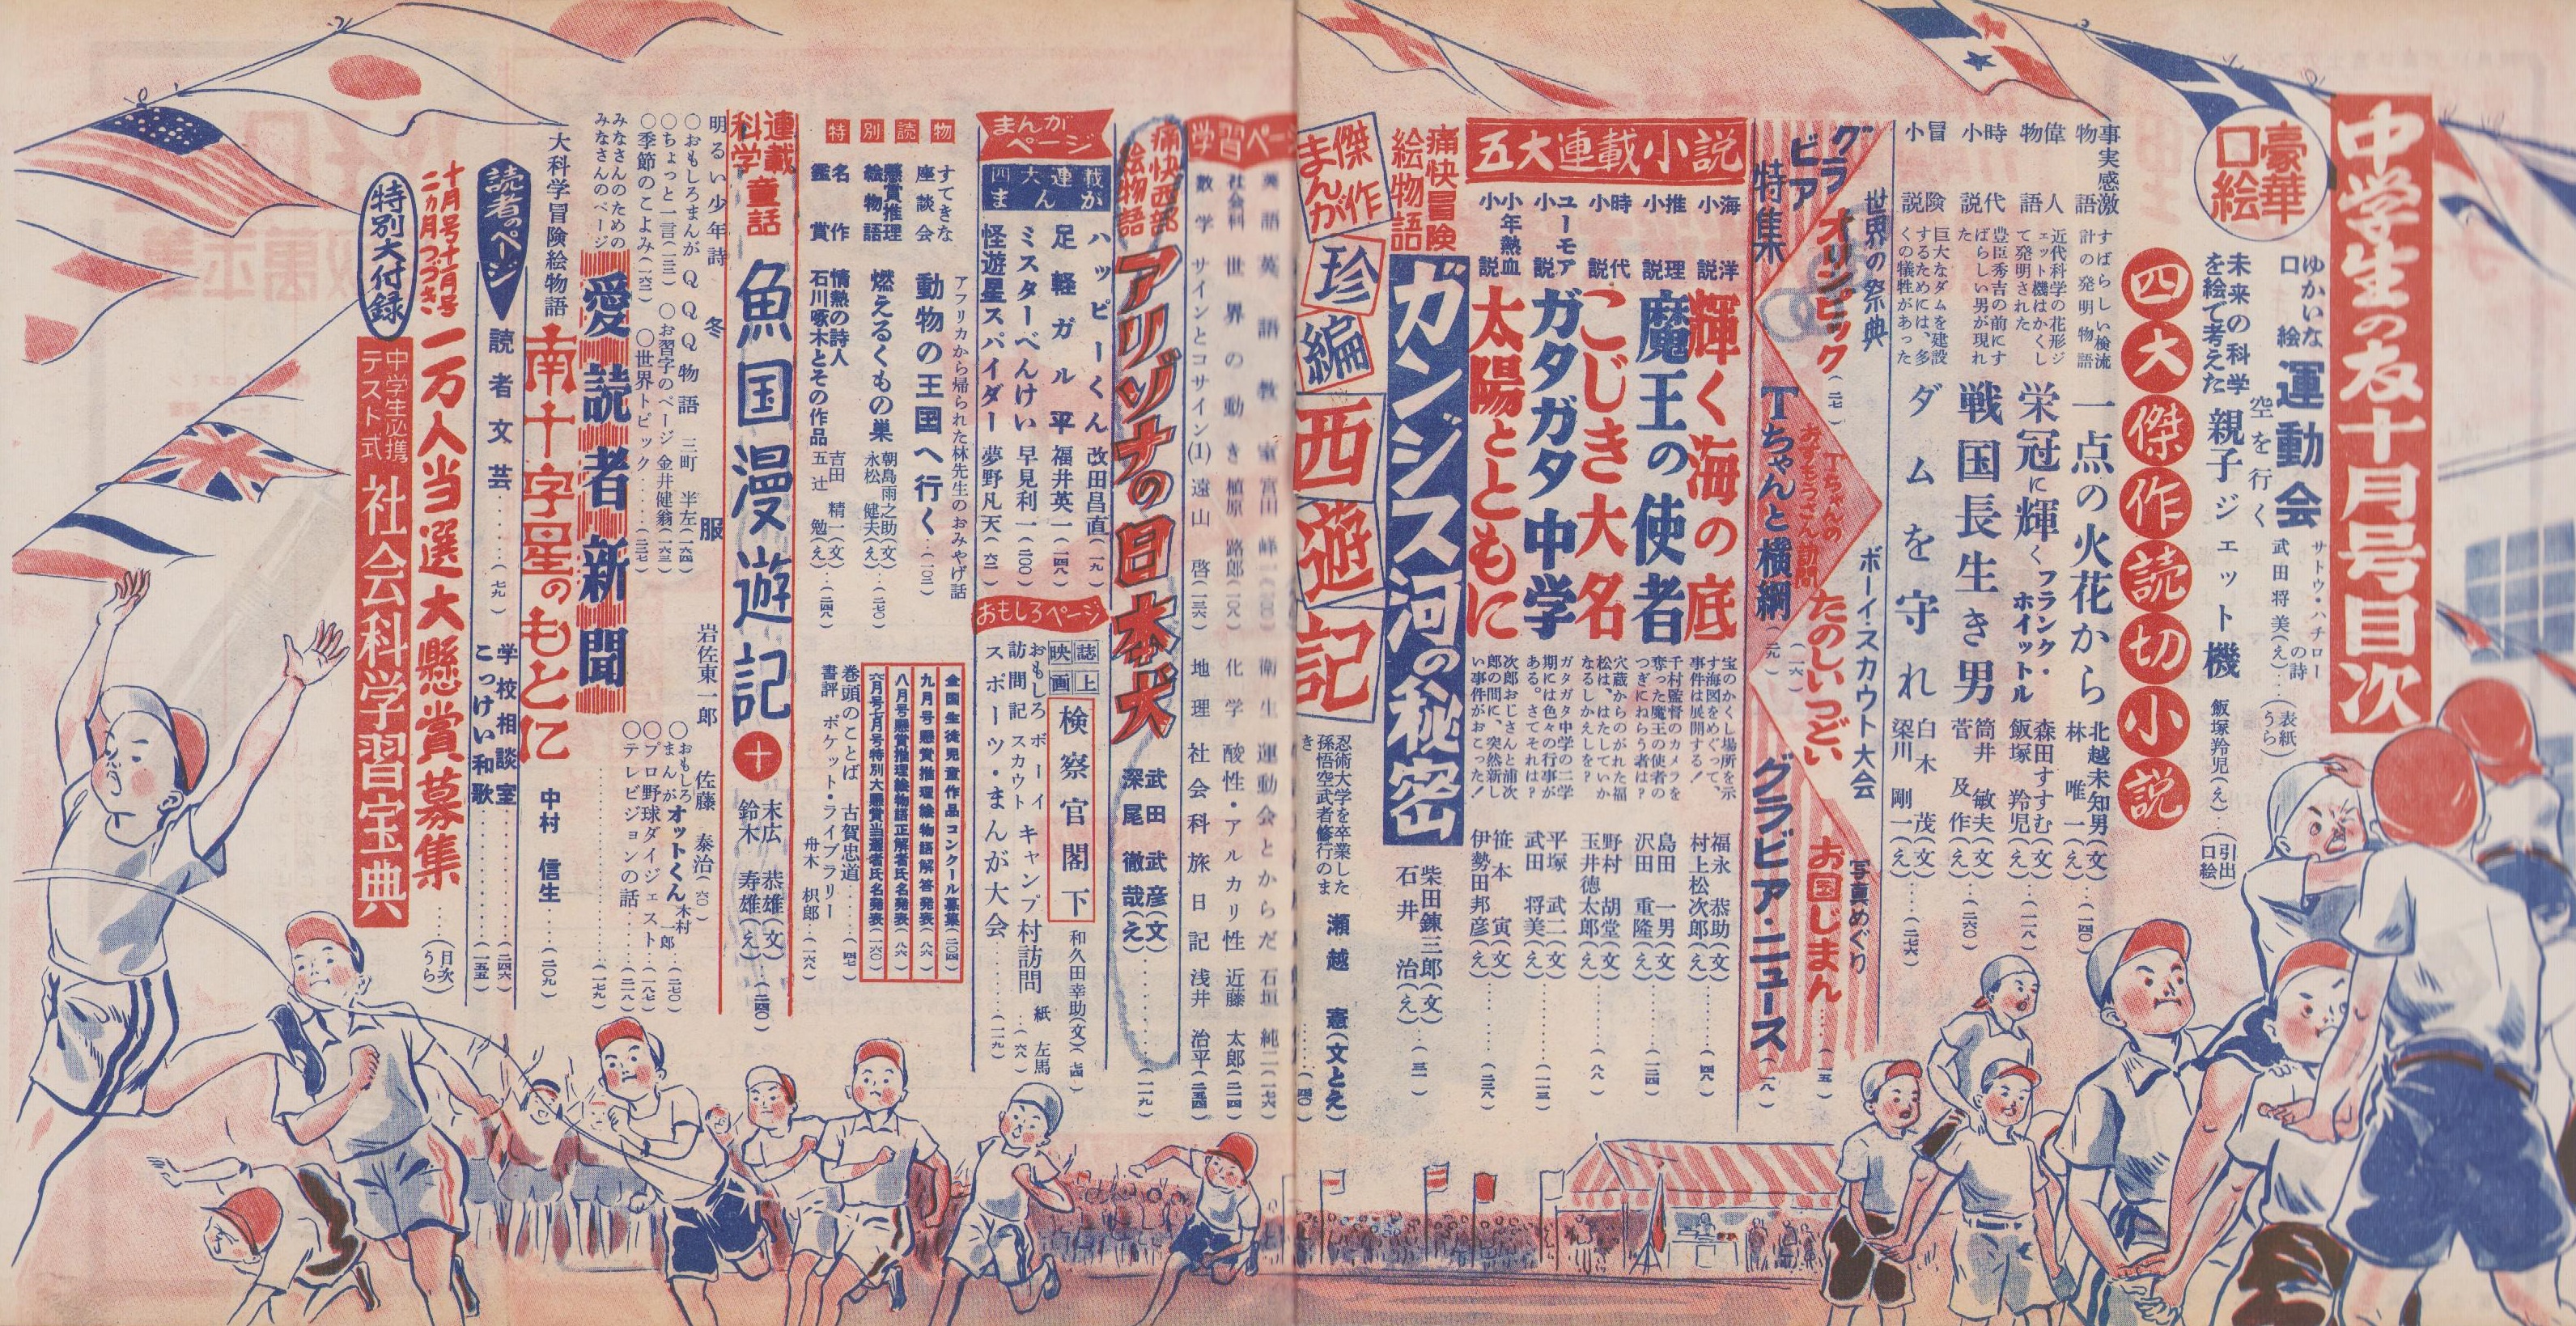 中学生の友十月号目次
豪華口絵
ゆかいな口絵
運動会
サトウ・ハチローの詩
武田将美(え)
(表紙うら)
未来の科学を絵で考えた
空を行く
親子ジェット機
飯塚羚児(え)
(引出口絵)
四大傑作読切小説
事実感激物語
すばらしい検流計の発明物語
一点の火花から
北越未知男(文)
林唯一(え)
(一四〇)
偉人物語
近代科学の花形ジェット機はかくして発明された
栄冠に輝くフランク・ホイットル
森田すすむ(文)
飯塚羚児(え)
(二一八)
時代小説
豊臣秀吉の前にすばらしい男が現れた
戦国長生き男
筒井敏夫(文)
菅及作(え)
(二六〇)
冒険小説
巨大なダムを建設するためには、多くの犠牲があった
ダムを守れ
白木茂(文)
梁川剛一(え)
(二七六)
グラビア特集
世界の祭典
オリンピック
(二七)
ボーイ・スカウト大会
たのしいつどい
(一六)
写真めぐり
お国じまん
(一五)
Tちゃんのおすもうさん訪問
Tちゃんと横綱
(二元)
グラビア・ニュース
(一八)
五大連載小説
海洋小説
輝く海の底
宝のかくし場所を示す海図をめぐって、事件は展開する!
福永恭助(文)
村上松次郎(え)
(四八)
推理小説
魔王の使者
千村監督のカメラを奪った魔王の使者のつぎにねらう者は?
島田一男(文)
沢田重隆(え)
(二四)
時代小説
こじき大名
穴蔵からのがれた福松は、はたしていかなるしかえしを?
野村胡堂(文)
玉井徳太郎(え)
(八八)
ユーモア小説
ガタガタ中学
ガタガタ中学の二学期には色々の行事がある。さてそれは?
平塚武二(文)
武田将美(え)
(一二三)
少年熱血小説
太陽とともに
次郎おじさんと浦次郎の間に、突然新しい事件がおこった!
笹本寅(文)
伊勢田邦彦(え)
(二三八)
痛快冒険絵物語
ガンジス河の秘密
柴田錬三郎(文)
石井治(え)
(三一)
傑作まんが
珍編西遊記
忍術大学を卒業した孫悟空武者修行のまき
瀬越憲(文とえ)
学習ページ
英語 英語教室 宮田峰一
社会科 世界の動き 植原路郎(一〇八)
数学 サインとコサイン(1) 遠山啓(一三六)
衛生 運動会とからだ 石垣純二(一七六)
化学 酸性・アルカリ性 近藤太郎(二一四)
地理 社会科旅日記 浅井治平(二五四)
痛快西部絵物語
アリゾナの日本犬
武田武彦(文)
深尾徹哉(え)
(一一九)
まんがページ
四大連載まんが
ハッピーくん 改田昌直(一九)
足軽ガル平 福井英一(一四八)
ミスターべんけい 早見利一(二〇〇)
怪遊星スパイダー 夢野凡天(六二)
おもしろページ
誌上映画
検察官閣下
和久田幸助(文)(七四)
おもしろ訪問記 ボーイスカウトキャンプ村訪問 紙左馬(六八)
スポーツ・まんが大会(一一九)
特別読物
すてきな座談会
アフリカから帰られた林先生のおみやげ話
動物の王国へ行く(一〇二)
懸賞推理絵物語
燃えるくもの巣
朝島雨之助(文)
永松健夫(え)
(二七〇)
名作鑑賞
情熱の詩人
石川啄木とその作品
吉田精一(文)
五辻勉(え)
(二四八)
全国生徒児童作品コンクール募集(二〇四)
九月号懸賞推理絵物語解答発表(八六)
八月号懸賞推理絵物語正解者氏名発表(八六)
六月号七月号特別大懸賞当選者氏名発表(一六〇)
巻頭のことば 古賀忠道(四七)
書評 ポケット・ライブラリー 舟木枳郎(一六八)
連載科学童話
魚国漫遊記
十
末広恭雄(文)
鈴木寿雄(え)
(二四〇)
明るい少年詩 冬服 岩佐東一郎 佐藤泰治(六〇)
○おもしろまんが QQQ物語 三町半左(一六四)
○ちょっと一言(一三三)
○お習字のページ 金井健翁(一六三)
○季節のこよみ(一六三)
○世界トピック(二三七)
○おもしろまんが オットくん 木村一郎(二七〇)
○プロ野球ダイジェスト(一八七)
○テレビジョンの話(二一八)
みなさんのためのみなさんのページ
愛読者新聞
(一七九)
大科学冒険絵物語
南十字星のもとに
中村信生
(二〇九)
読者のページ
読者文芸(七九)
学校相談室(二四六)
こっけい和歌(一五五)
十月号十一月号二ヵ月つづき
一万人当選大懸賞募集
(目次うら)
特別大付録
中学生必携テスト式
社会科学習宝典